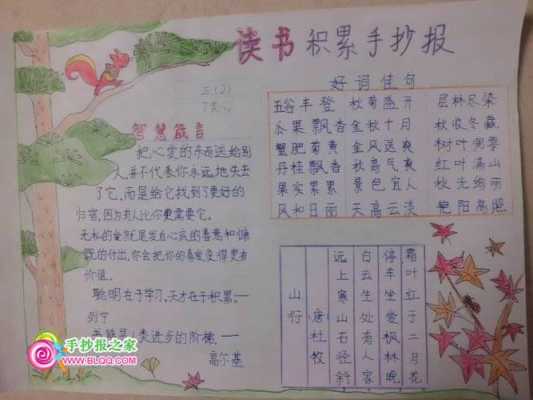 读书积累手抄报
智慧箴言
把心爱的东西送给别
人并不代表你永远地失去
了它,而是给它找到了更好的
归宿,因为有人比你更需要它。
无私的给予是发自心底的善意和慷
慨的付出,你会把你的喜爱变得更有
价值。
聪明在于学习,天才在于积累,——
列宁
书籍是人类进步的阶梯,——
高尔基
好词佳句
五谷丰登 秋菊盛开 层林尽染
瓜果飘香 金秋十月 秋收冬藏
蟹肥菊黄 金风送爽 树叶凋零
丹桂飘香 秋高气爽 红叶满山
果实累累 景色宜人 秋光绚丽
风和日丽 天高云淡 艳阳高照
山行
唐杜牧
远上寒山石径斜
白云生处有人家
停车坐爱枫林晚
霜叶红于二月花
手抄报之家
WWW.BLQQ.COM